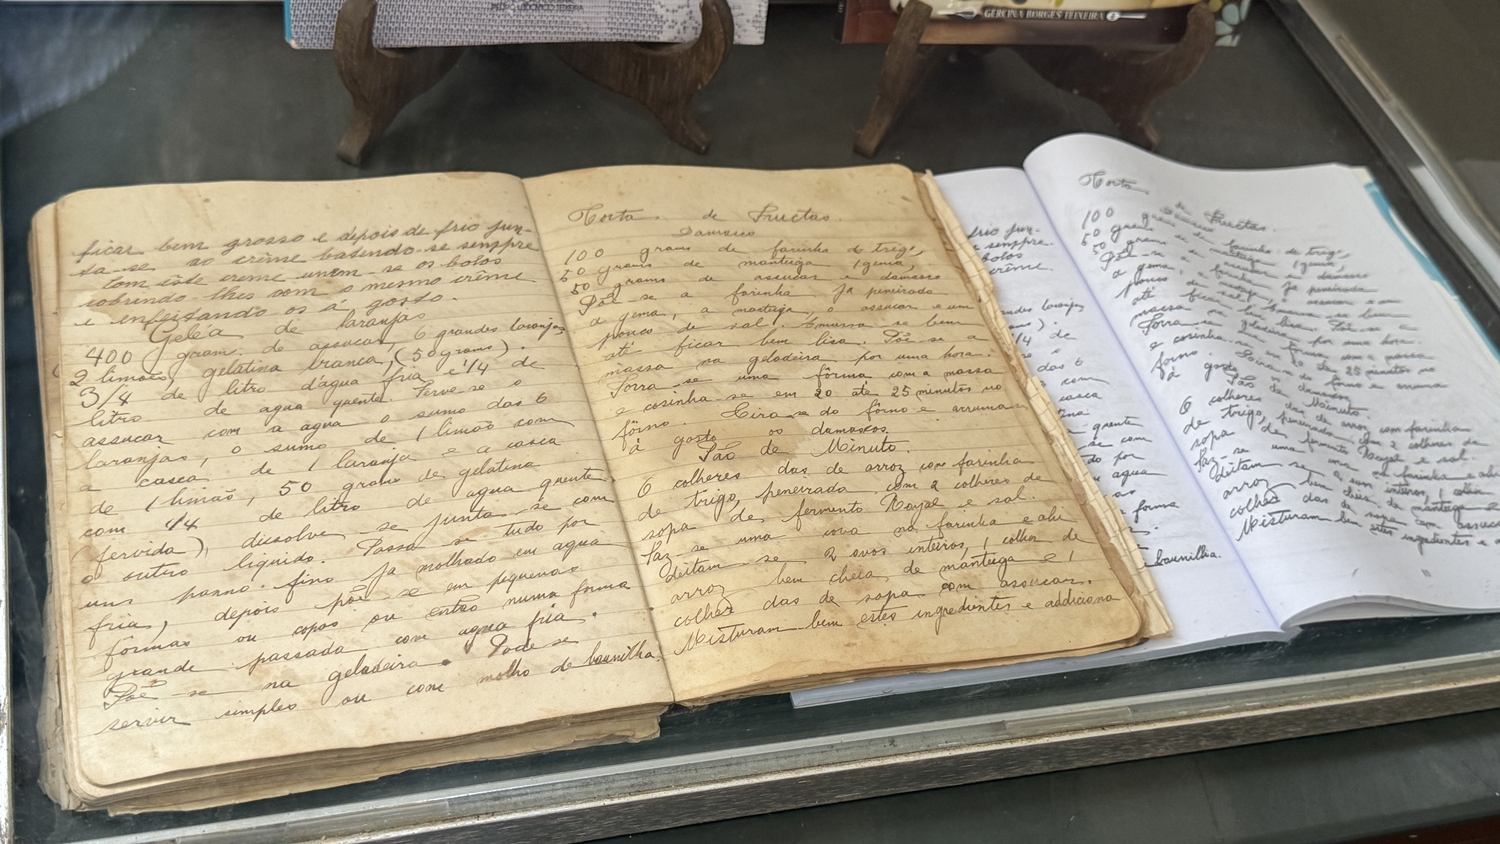 GERCINA BORGES TEIXEIRA
ficar bem grosso e depois de frio jun-
ta-se ao crême batendo-se sempre
com iste creme unem-se os bolos
cobrindo-lhes com o mesmo crême
e enfeitando os á gosto.
Geléa de laranjas
400 gram. de assucar, 6 grandes laranjas,
2 limões, gelatina branca, (50 grams).
3/4 de litro d'agua fria e 1/4 de
litro de agua quente. Ferve-se o
assucar com a agua o sumo das 6
laranjas, o sumo de 1 limão com
a casca de 1 laranja e a casca
de 1 limão, 50 grams de gelatina
com 1/4 de litro de agua quente
(fervida), dissolve-se junta-se com
o outro liquido. Passa-se tudo por
um panno fino já molhado em agua
fria, depois põe-se em pequenas
fôrmas ou copos ou então numa forma
grande passada com agua fria.
Põe-se na geladeira. Pode se
servir simples ou com molho de baunilha.
Torta de Fructas.
Damasco
100 grams de farinha de trigo,
50 grams de manteiga 1 gema,
50 grams de assucar e damasco
Põe-se a farinha já peneirada
a gema, a manteiga, o assucar e um
pouco de sal. Amassa-se bem
até ficar bem lisa. Põe-se a
massa na geladeira por uma hora.
Forra-se uma fôrma com a massa
e cosinha-se em 20 até 25 minutos no
fôrno. Tira-se do fôrno e arruma
á gosto os damascos.
Pão de Minuto.
6 colheres das de arroz com farinha
de trigo, peneirada com 2 colheres de
sopa de fermento Royal e sal.
Faz-se uma cova na farinha e ahi
deitam-se 2 ovos inteiros, 1 colher de
arroz bem cheia de manteiga e 1
colher das de sopa com assucar.
Misturam bem estes ingredientes e addiciona
Torta de Fructas.
100 grams de farinha de trigo,
50 grams de manteiga 1 gema,
50 grams de assucar e damasco
Põe-se a farinha já peneirada
Pão de Minuto
6 colheres das de arroz com farinha
de trigo, peneirada com 2 colheres de
sopa de fermento Royal e sal.
Faz-se uma cova na farinha e ahi
deitam-se 2 ovos inteiros, 1 colher
arroz bem cheia de manteiga e
colher das de sopa com assucar
Misturam bem estes ingredientes e a
baunilha.